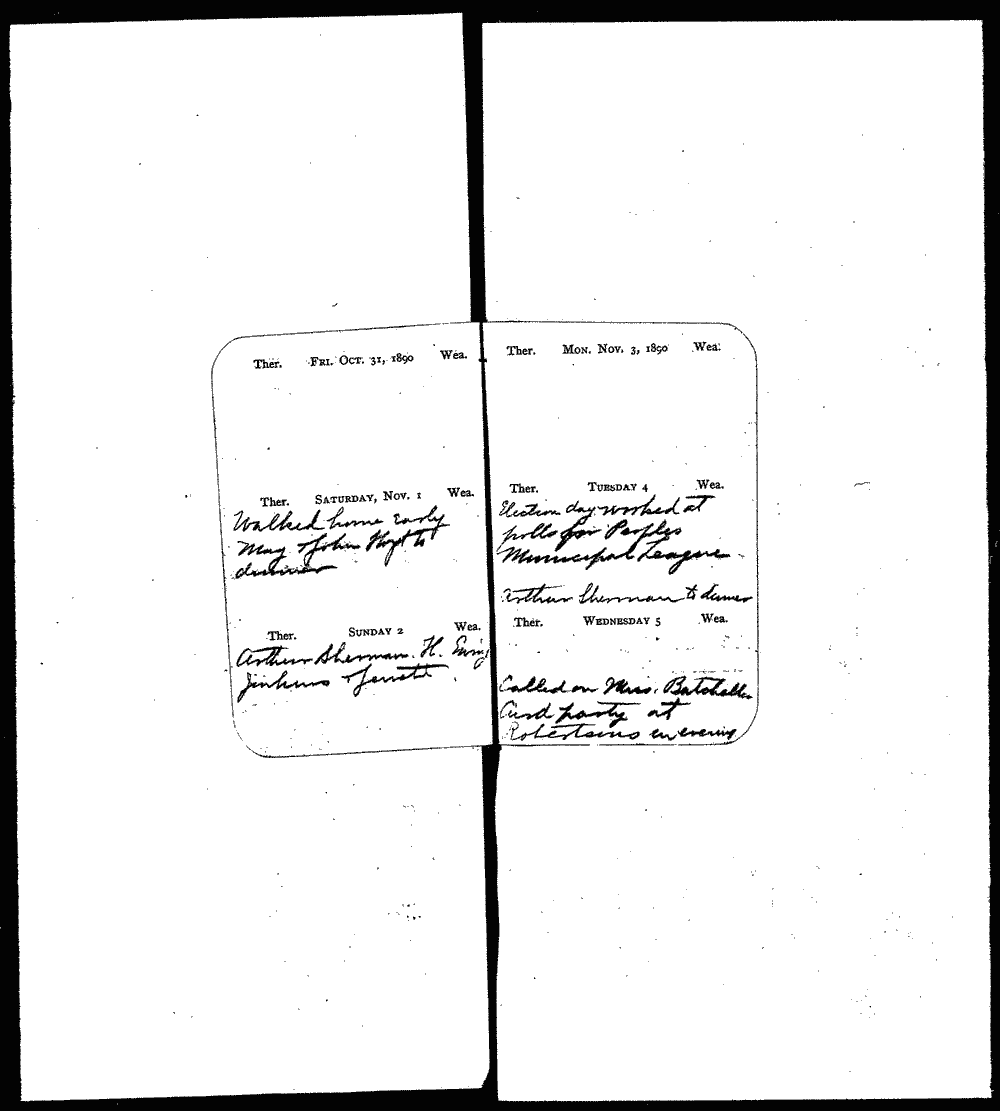 Ther. FRI. OCT. 31, 1890 Wea.
Ther. SATURDAY, NOV. 1 Wea.
Walked home early
May & John Hoyt to
dinner
Ther. SUNDAY 2 Wea.
Arthur Sherman. H. Ewing
Jenkins &
Ther. MON. NOV. 3, 1890 Wea.
Ther. TUESDAY 4 Wea.
Election day worked at
polls for Peoples
Municipal League
Arthur Sherman to dinner
Ther. WEDNESDAY 5 Wea.
Called on Mrs. Batcheller
Card party at
Robertsons in evening